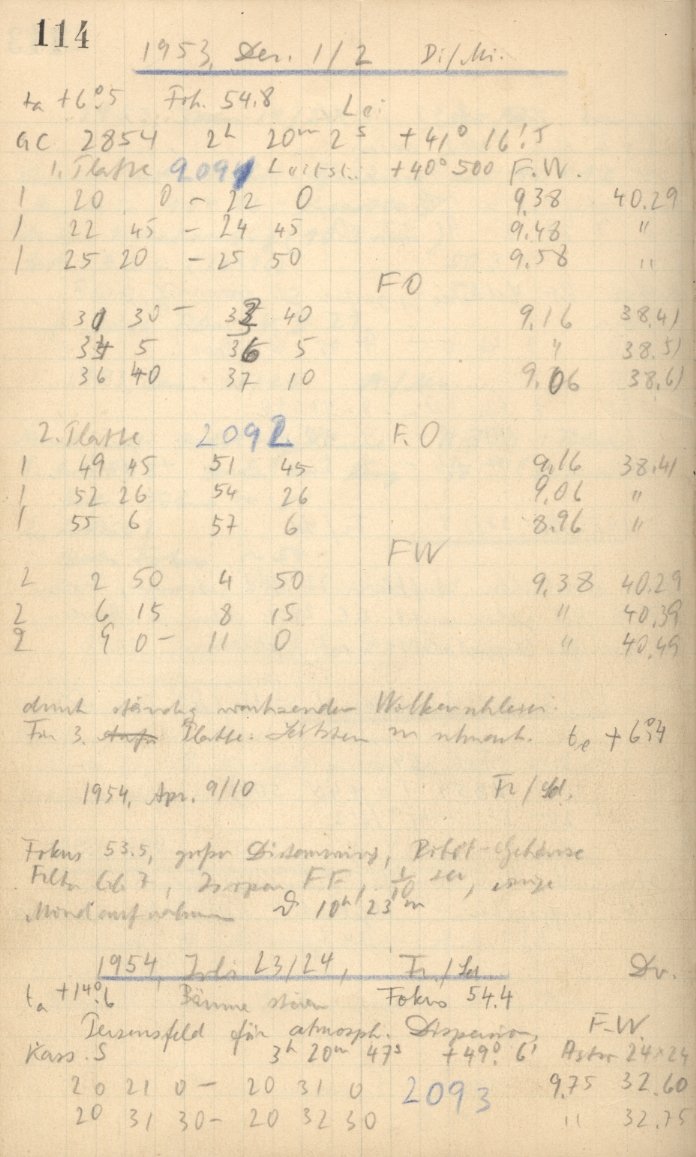 114
1953, Dez. 1/2 Di/Mi.
ta +6°.5 Fok. 54.8 Lei
GC 2854 2h 20m 2s +41° 16!5
1. Platte 2091 Leitst. +40° 500 F.W.
1 20 0 - 22 0 9.38 40.29
1 22 45 - 24 45 9.48 "
1 25 20 - 25 50 9.58 "
FO
31 30 - 33 40 9.16 38.41
34 5 36 5 " 38.51
36 40 37 10 9.06 38.61
2. Platte 2092 F.O
1 49 45 51 45 9.16 38.41
1 52 26 54 26 9.06 "
1 55 6 57 6 8.96 "
FW
2 2 50 4 50 9.38 40.29
2 6 15 8 15 " 40.39
2 9 0 - 11 0 " 40.49
durch ständig wachsenden Wolkenschleier.
Für 3. Platte: Leitstern zu schwach. te +6°.4
1954, Apr. 9/10 Fr/Sd.
Fokus 53.5, Robot-Gehäuse
Filter 7, Isopan FF, 1/10 sec, einige
Mondaufnahmen 10h 23m
1954 Juli 23/24, Fr./Sd Dv.
ta +14°.6 Bäume stören Fokus 54.4
Perseusfeld für atmosph. Dispersion, F.W.
Kass. S 3h 20m 47s +49° 6' Astro 24×24
20 21 0 - 20 31 0 2093 9.75 32.60
20 31 30 - 20 32 30 " 32.75